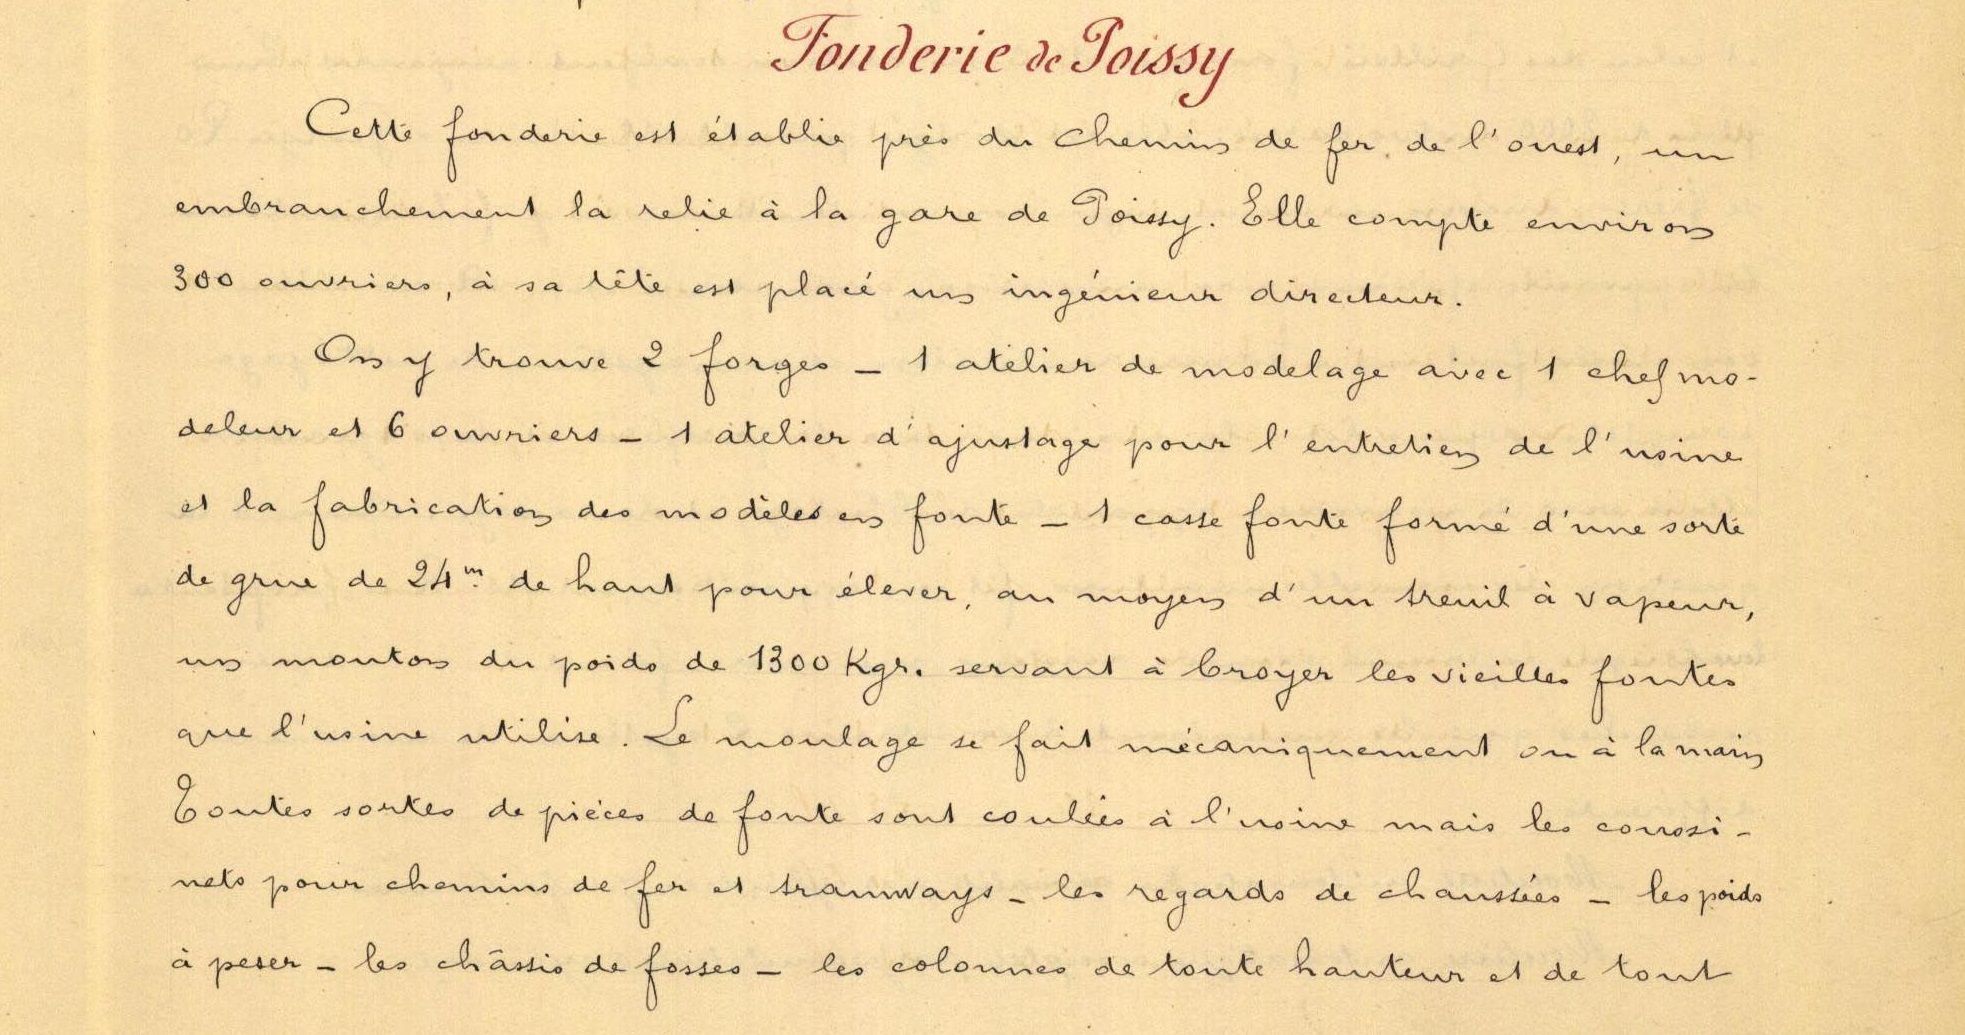 Fonderie de Poissy
Cette fonderie est établie près du chemin de fer de l'ouest, un
embranchement la relie à la gare de Poissy. Elle compte environ
300 ouvriers, à sa tête est placé un ingénieur directeur.
On y trouve 2 forges _ 1 atelier de modelage avec 1 chef mo-
deleur et 6 ouvriers _ 1 atelier d'ajustage pour l'entretien de l'usine
et la fabrication des modèles en fonte _ 1 casse fonte formé d'une sorte
de grue de 24m. de haut pour élever, au moyen d'un treuil à vapeur,
un mouton du poids de 1300 Kgr. servant à broyer les vieilles fontes
que l'usine utilise. Le moulage se fait mécaniquement ou à la main
Toutes sortes de pièces de fonte sont coulées à l'usine mais les coussi-
nets pour chemins de fer et tramways _ les regards de chaussées _ les poids
à peser _ les châssis de fosses _ les colonnes de toute hauteur et de tout